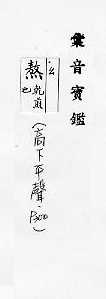 彙音寶鑑
熬乾煎也
(高下平聲·P300)